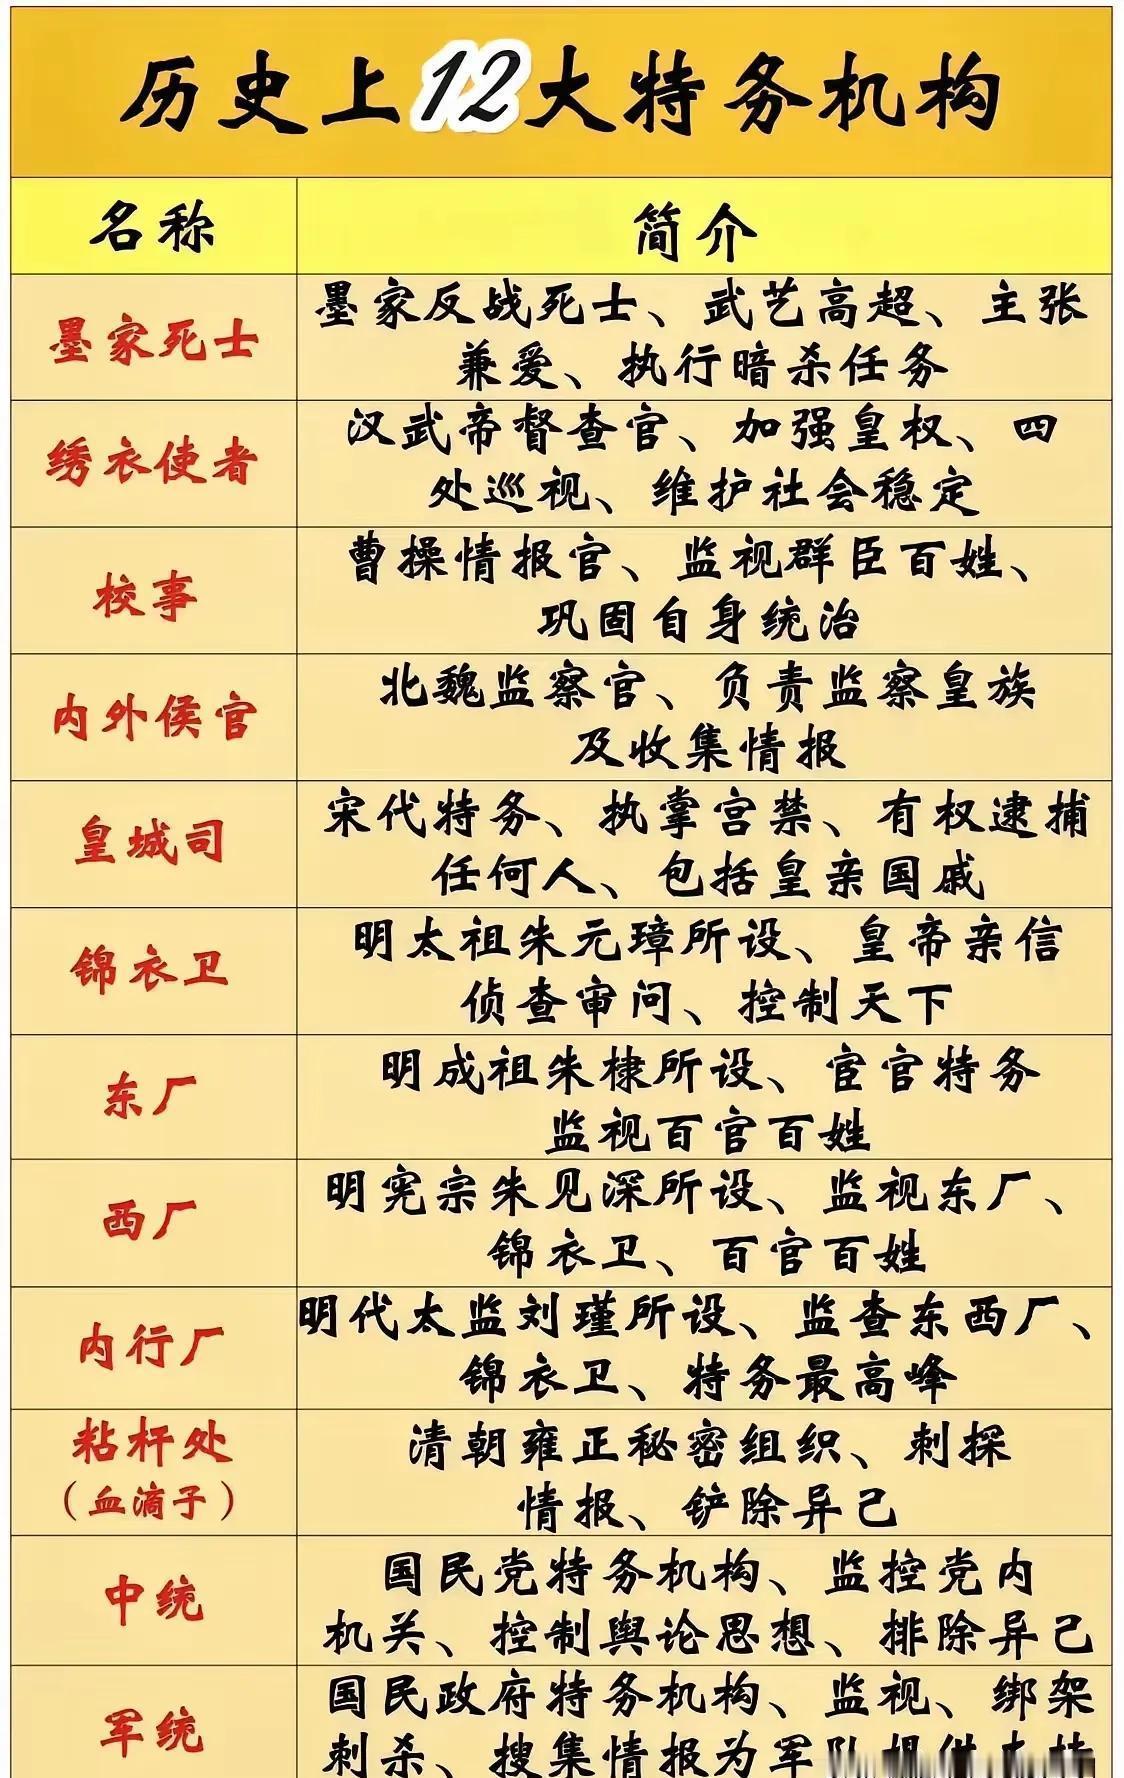 历史上12大特务机构
名称
简介
墨家死士
墨家反战死士、武艺高超、主张
兼爱、执行暗杀任务
绣衣使者
汉武帝督查官、加强皇权、四
处巡视、维护社会稳定
校事
曹操情报官、监视群臣百姓、
巩固自身统治
内外侯官
北魏监察官、负责监察皇族
及收集情报
皇城司
宋代特务、执掌宫禁、有权逮捕
任何人、包括皇亲国戚
锦衣卫
明太祖朱元璋所设、皇帝亲信
侦查审问、控制天下
东厂
明成祖朱棣所设、宦官特务
监视百官百姓
西厂
明宪宗朱见深所设、监视东厂、
锦衣卫、百官百姓
内行厂
明代太监刘瑾所设、监查东西厂、
锦衣卫、特务最高峰
粘杆处
（血滴子）
清朝雍正秘密组织、刺探
情报、铲除异己
中统
国民党特务机构、监控党内
机关、控制舆论思想、排除异己
军统
国民政府特务机构、监视、绑架
刺杀、搜集情报为军队提供支持